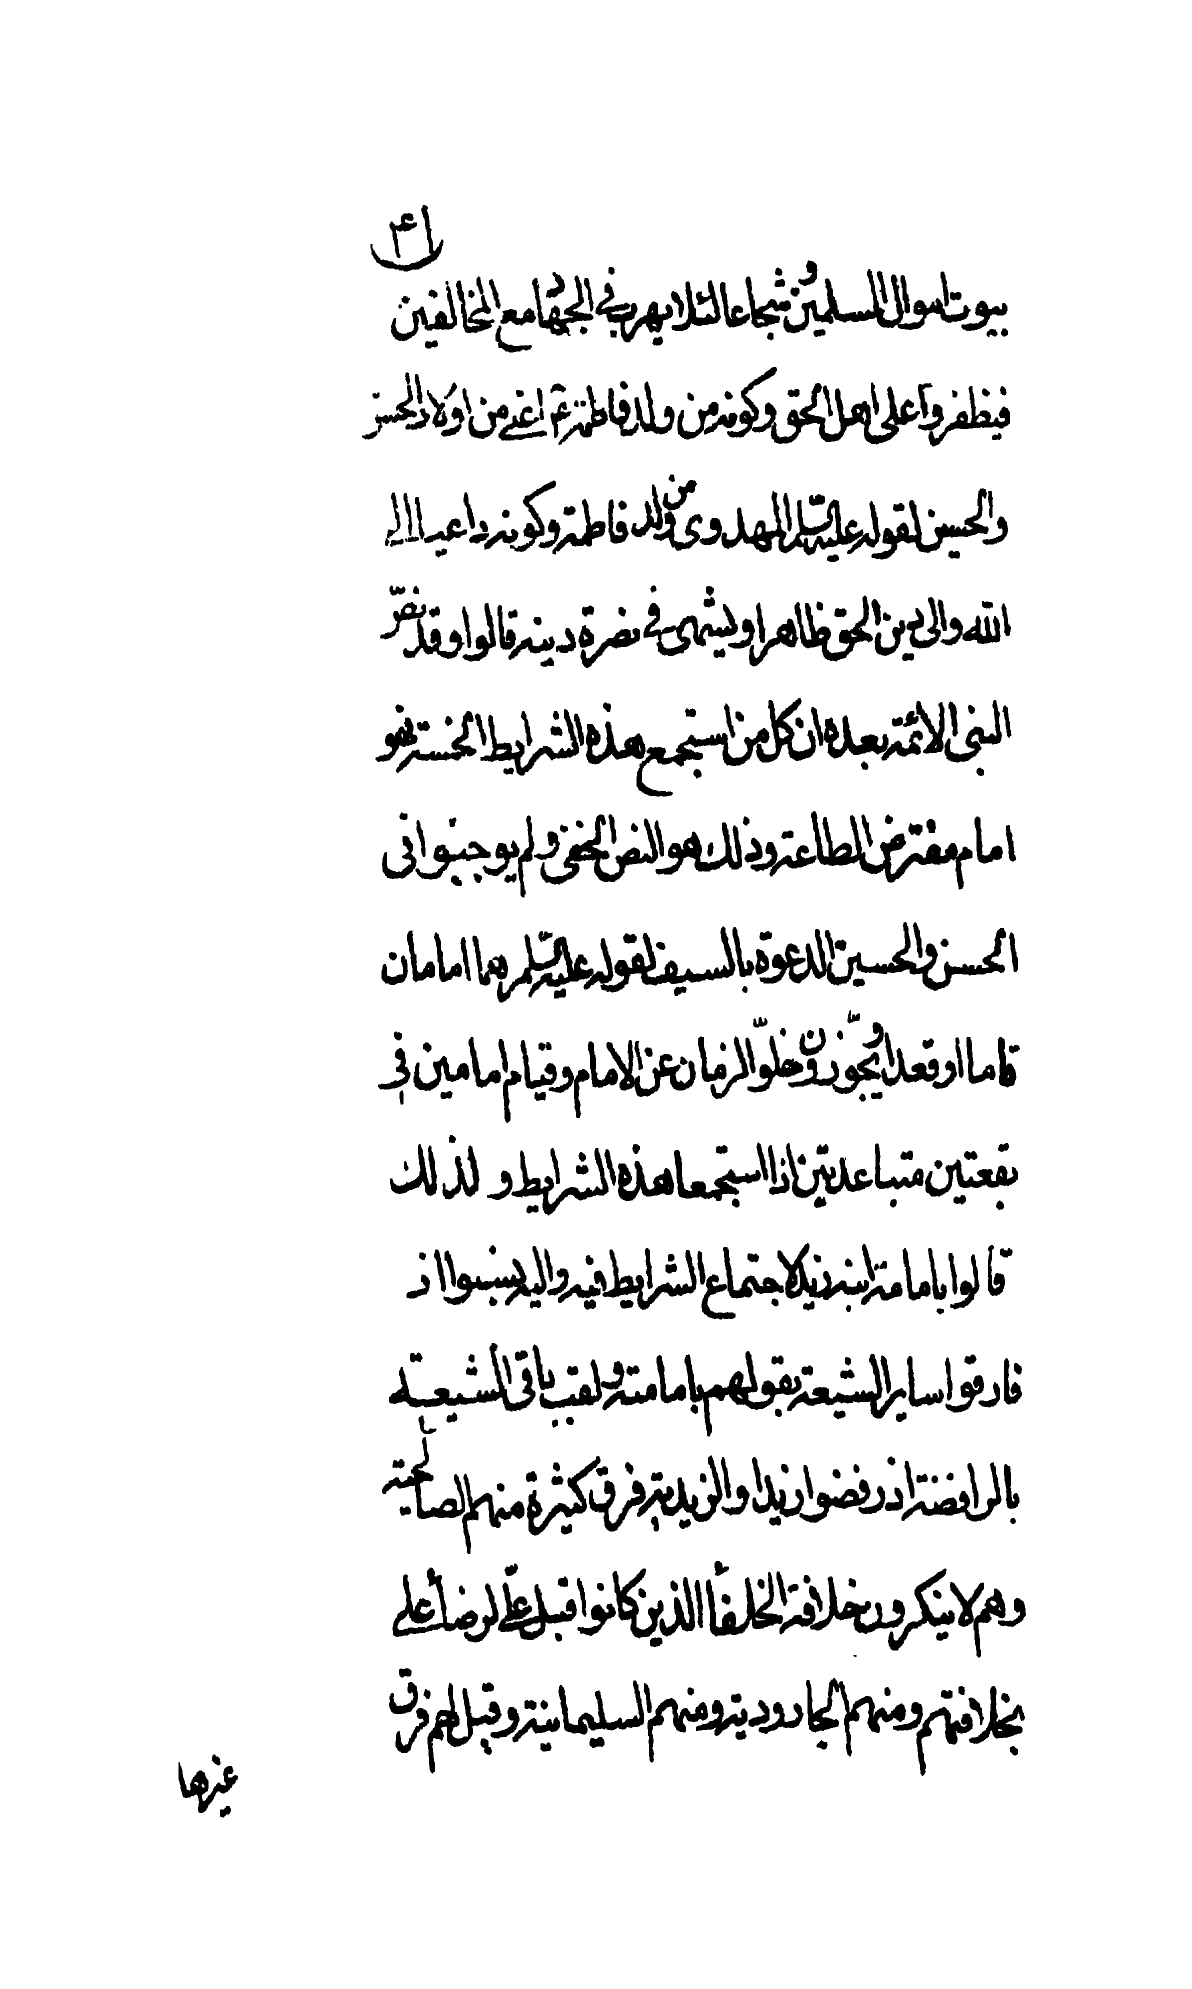 ١٤
بيوت اموال المسلمين و شجاعا لئلا يهرب في الجهاد مع المخالفين
فيظفروا على اهل الحق وكونه من ولد فاطمة ع اعني من اولاد الحسن
والحسين لقوله عليه السلم المهدي من ولد فاطمة وكونه داعيا الى
الله والى دين الحق ظاهرا و يشهر في نصرة دينه قالوا وقد نصّ
النبي الائمة بعده ان كل من استجمع هذه الشرايط الخمسة فهو
امام مفترض الطاعة وذلك هو النص الخفي ولم يوجبوا في
الحسن والحسين الدعوة بالسيف لقوله عليه السلم هما امامان
قاما او قعدا و يجوّزون خلوّ الزمان عن الامام وقيام امامين في
بقعتين متباعدتين اذا استجمعا هذه الشرايط و لذلك
قالوا بامامة ابنه زيد لاجتماع الشرايط فيه واليه ينسبوا اذ
فارقوا ساير الشيعة بقولهم بامامته و لقب باقي الشيعة
بالرافضة اذ رفضوا زيدا والزيدية فرق كثيرة منهم الصالحية
وهم لا ينكرون خلافة الخلفأ الذين كانوا قبل علىّ لرضأ على
بخلافتهم ومنهم الجارودية ومنهم السليمانية وقيل لهم فرق
غيرها